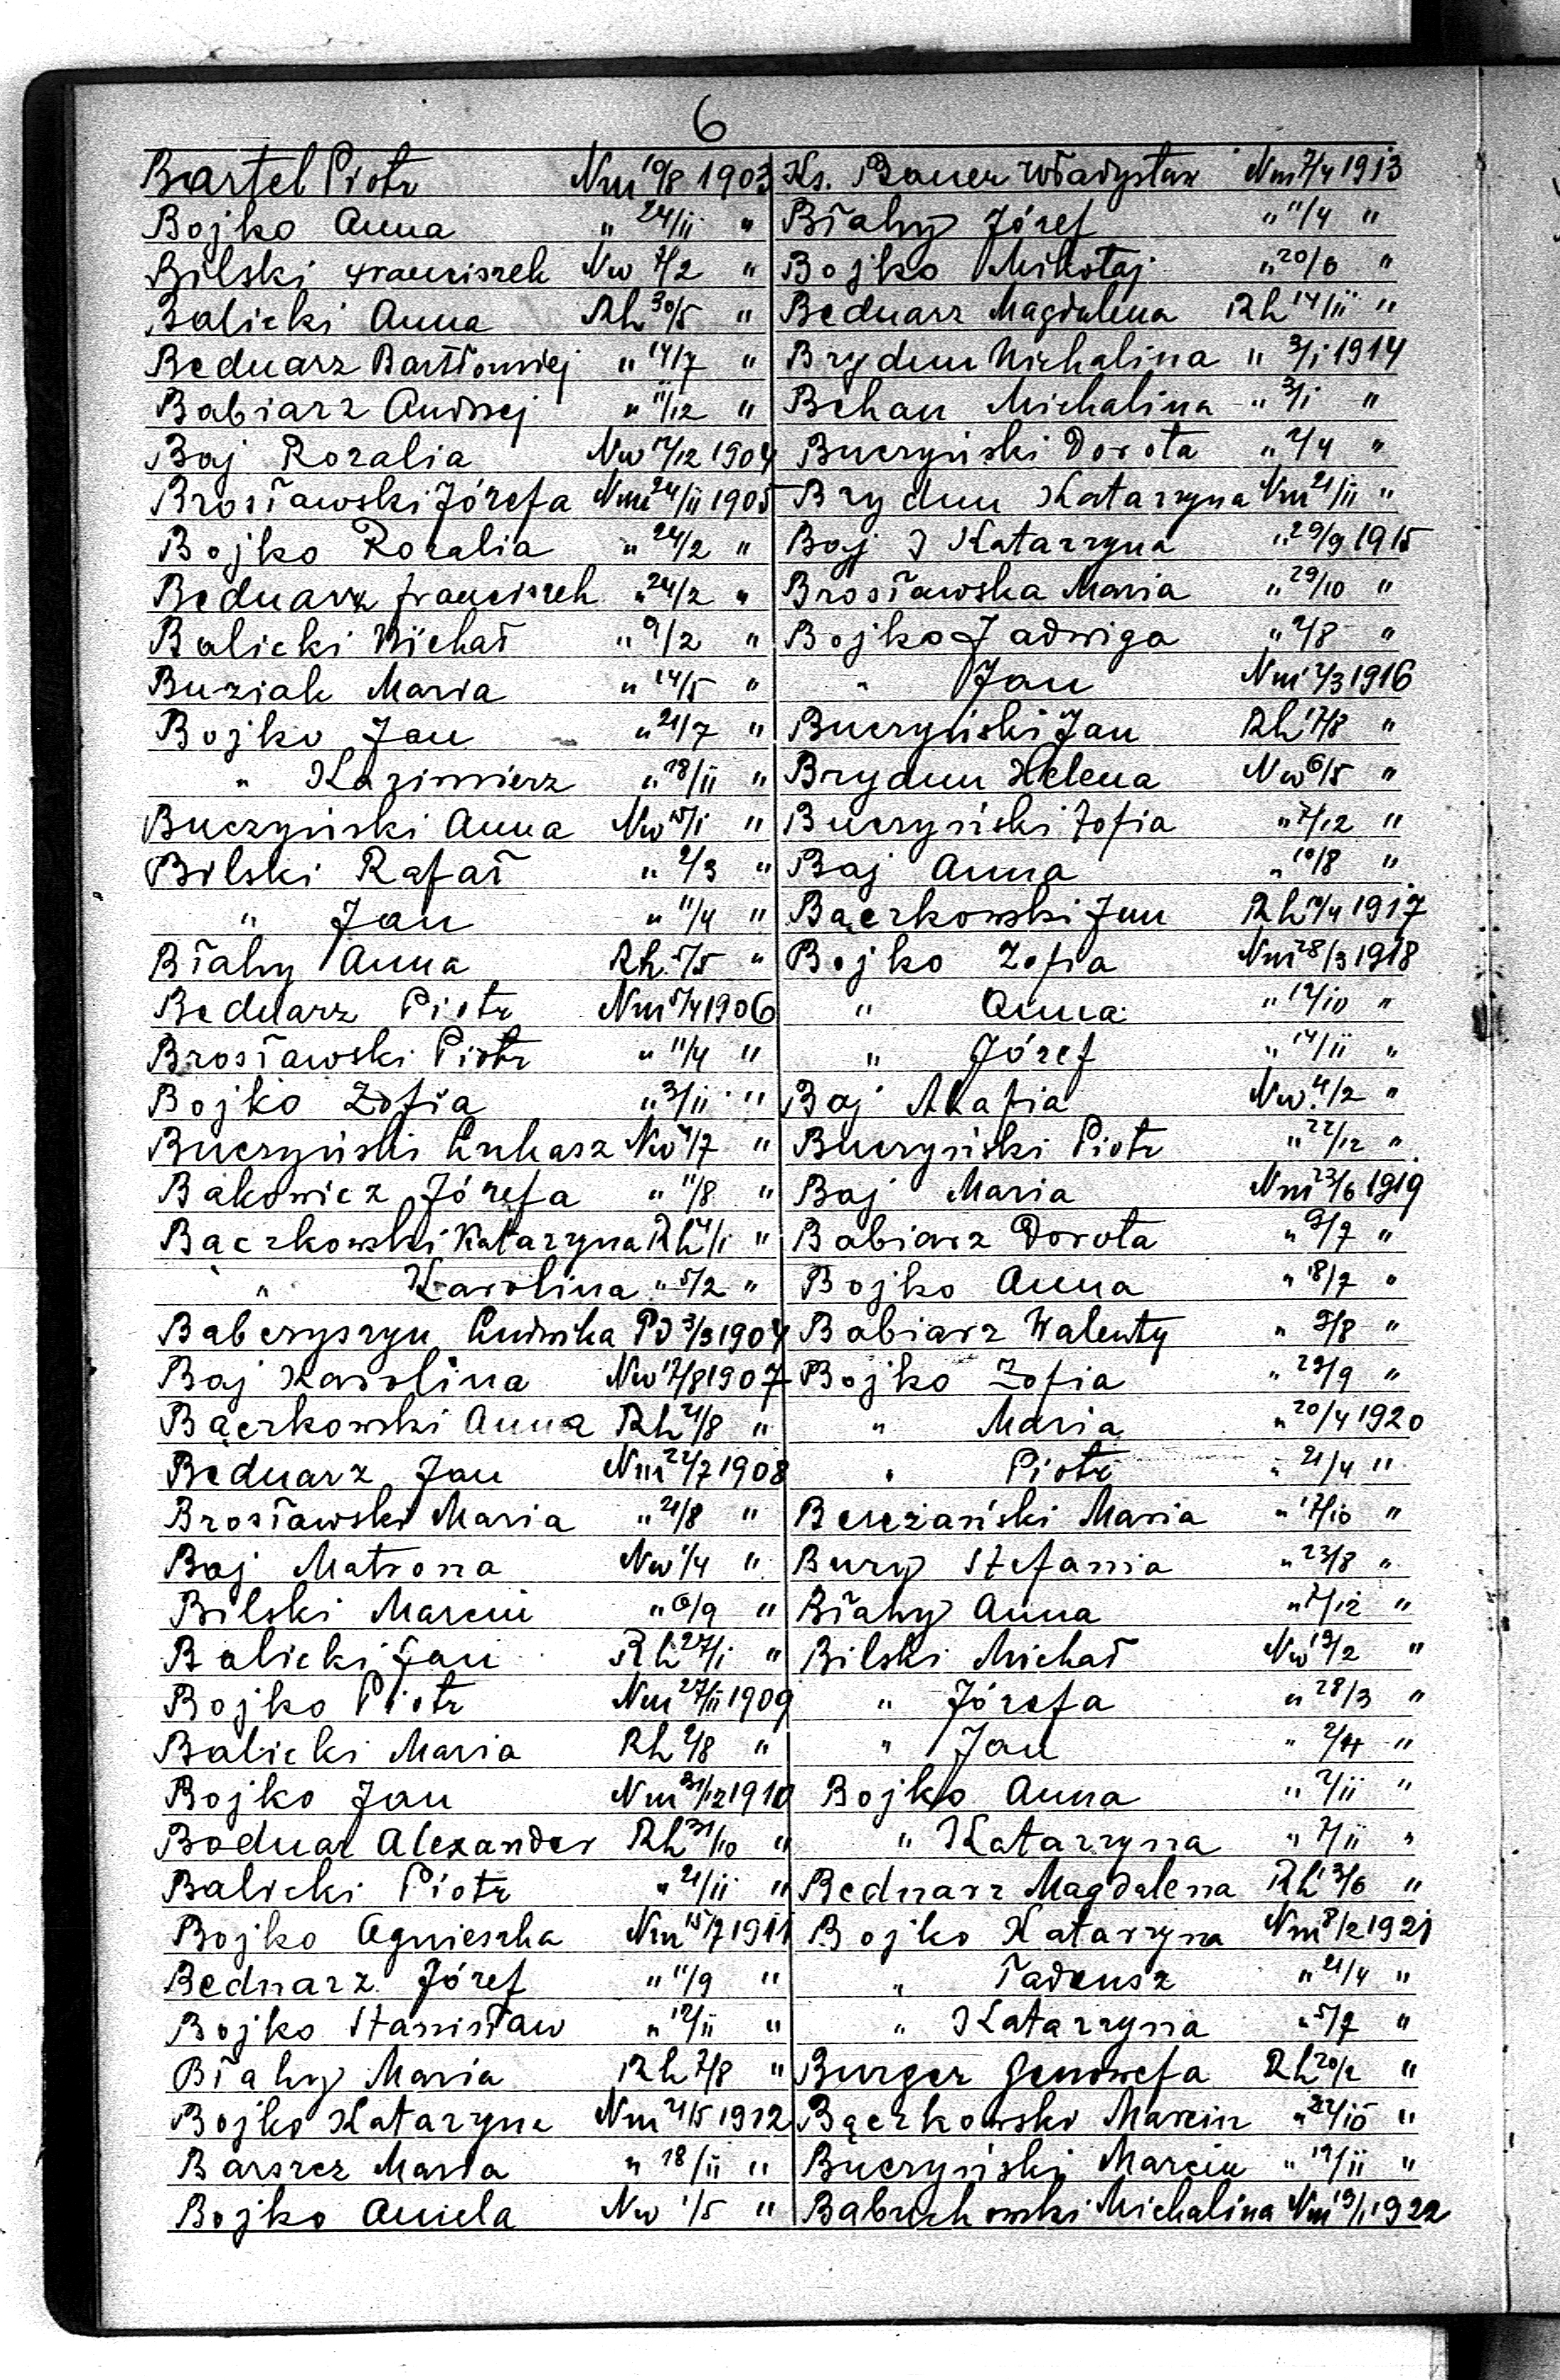 6
Bartel Piotr Nm 10/8 1903
Bojko Anna " 24/11 "
Bilski Franciszek Nw 7/2 "
Balicki Anna Rh 30/5 "
Bednarz Bartłomiej " 14/7 "
Babiarz Andrzej " 11/12 "
Baj Rozalia Nw 17/12 1904
Brosławski Józefa Nm 24/11 1905
Bojko Rozalia " 24/2 "
Bednarz Franciszek " 24/2 "
Balicki Michał " 9/2 "
Buziak Maria " 14/5 "
Bojko Jan " 21/7 "
" Kazimierz " 18/11 "
Buczyński Anna Nw 15/1 "
Bilski Rafał " 2/3 "
" Jan " 11/4 "
Białyy Anna Rh 5/5 "
Bednarz Piotr Nm 5/4 1906
Brosławski Piotr " 11/4 "
Bojko Zofia " 3/11 "
Buczyński Łukasz Nw 4/7 "
Bakowicz Józefa " 11/8 "
Bączkowski Katarzyna Rh 4/1 "
" Karolina " 5/2 "
Baberyszyn Ludwika Pd 3/3 1904
Baj Karolina Nw 17/8 1907
Bączkowski Anna Rh 21/8 "
Bednarz Jan Nm 22/7 1908
Brosławski Maria " 21/8 "
Baj Matrona Nw 1/4 "
Bilski Marcin " 6/9 "
Balicki Jan Rh 27/1 "
Bojko Piotr Nm 27/11 1909
Balicki Maria Rh 2/8 "
Bojko Jan Nm 31/12 1910
Bodnar Alexander Rh 31/10 "
Balicki Piotr " 21/11 "
Bojko Agnieszka Nm 15/7 1911
Bednarz Józef " 11/9 "
Bojko Stanisław " 12/11 "
Biahy Maria Rh 7/8 "
Bojko Katarzyna Nm 21/5 1912
Barszcz Maria " 18/11 "
Bojko Aniela Nw 1/5 "
Ks. Bauer Władysław Nm 7/4 1913
Białyy Józef " 11/4 "
Bojko Mikołaj " 20/6 "
Bednarz Magdalena Rh 14/11 "
Brydun Michalina " 3/1 1914
Behan Michalina " 3/1 "
Buczyński Dorota " 2/4 "
Brydun Katarzyna Nm 21/11 "
Baj Katarzyna " 29/9 1915
Brosławska Maria " 29/10 "
Bojko Jadwiga " 2/8 "
" Jan Nm 2/3 1916
Buczyński Jan Rh 17/8 "
Brydun Helena Nw 6/5 "
Buczyński Zofia " 7/12 "
Baj Anna " 10/8 "
Bączkowski Jan Rh 10/4 1917
Bojko Zofia Nm 28/3 1918
" Anna " 12/10 "
" Józef " 14/11 "
Baj Akafia Nw 4/2 "
Buczyński Piotr " 22/12 "
Baj Maria Nm 23/6 1919
Babiarz Dorota " 9/7 "
Bojko Anna " 18/7 "
Babiarz Walenty " 9/8 "
Bojko Zofia " 29/9 "
" Maria " 20/4 1920
" Piotr " 21/4 "
Bereżański Maria " 17/10 "
Bury Stefania " 23/8 "
Biahy Anna " 7/12 "
Bilski Michał Nw 19/2 "
" Józefa " 28/3 "
" Jan " 2/4 "
Bojko Anna " 2/11 "
" Katarzyna " 7/11 "
Bednarz Magdalena Rh 13/6 "
Bojko Katarzyna Nm 8/2 1921
" Tadeusz " 21/4 "
" Katarzyna " 5/7 "
Burger Genowefa Rh 20/2 "
Bączkowski Marcin " 22/10 "
Buczyński Marcin " 19/11 "
Babuchowski Michalina Nm 19/1 1922